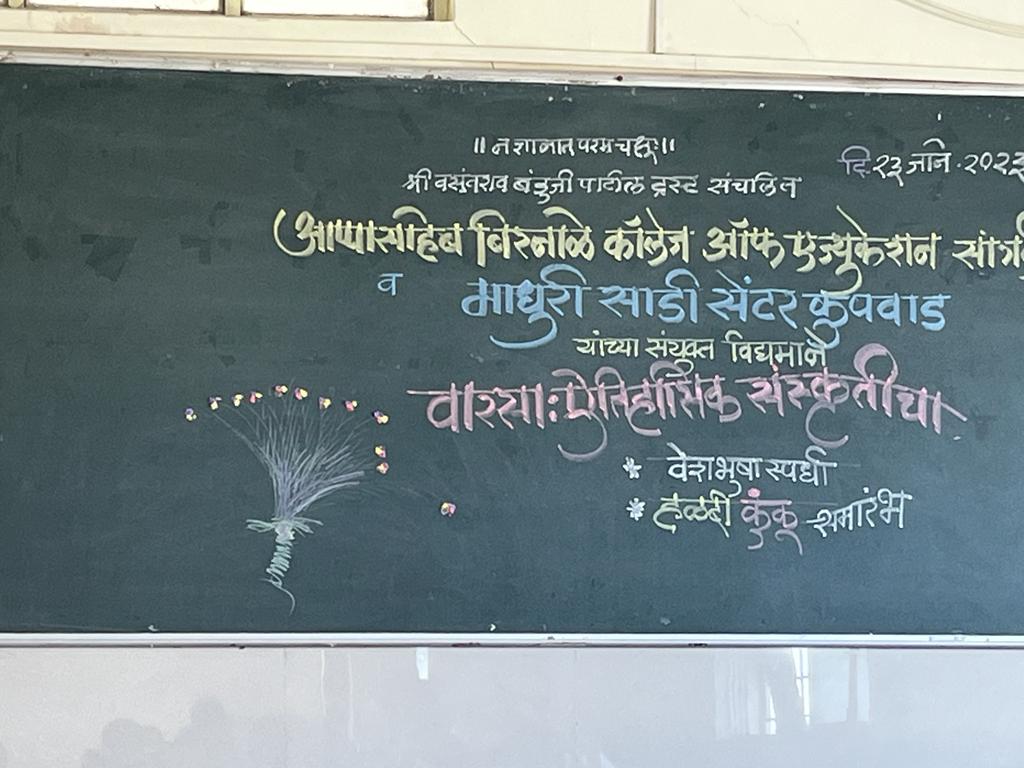 ॥ न ज्ञानात् परम चक्षुः ॥
दि. २३ जाने. २०२३
श्री वसंतराव बंडुजी पाटील ट्रस्ट संचलित
आप्पासाहेब बिरनाळे कॉलेज ऑफ एज्युकेशन
व माधुरी साडी सेंटर कुपवाड
यांच्या संयुक्त विद्यमाने
वारसा : ऐतिहासिक संस्कृतीचा
* वेशभुषा स्पर्धा
* हळदी कुंकू समारंभ